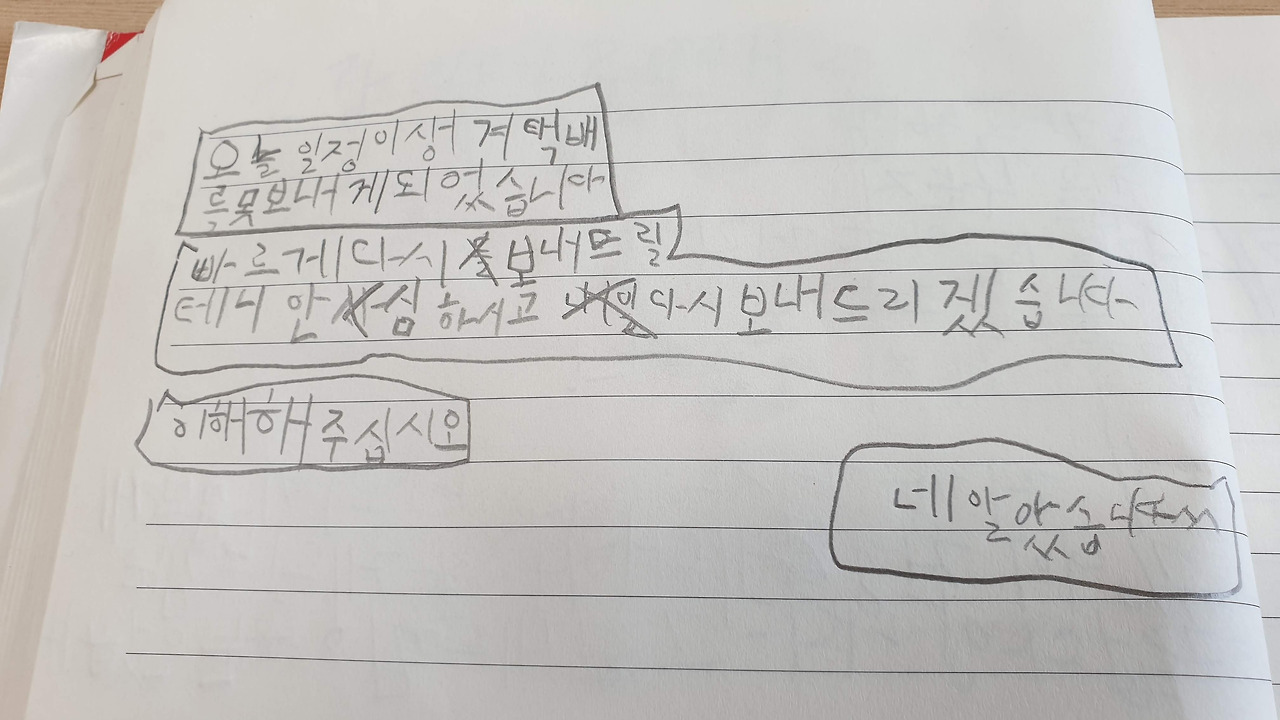 오늘 일정이 생겨 택배
를 못보내게되었습니다
빠르게 다시 보내드릴
테니 안심하시고 다시 보내드리겠습니다
이해해주십시오
네 알았습니다